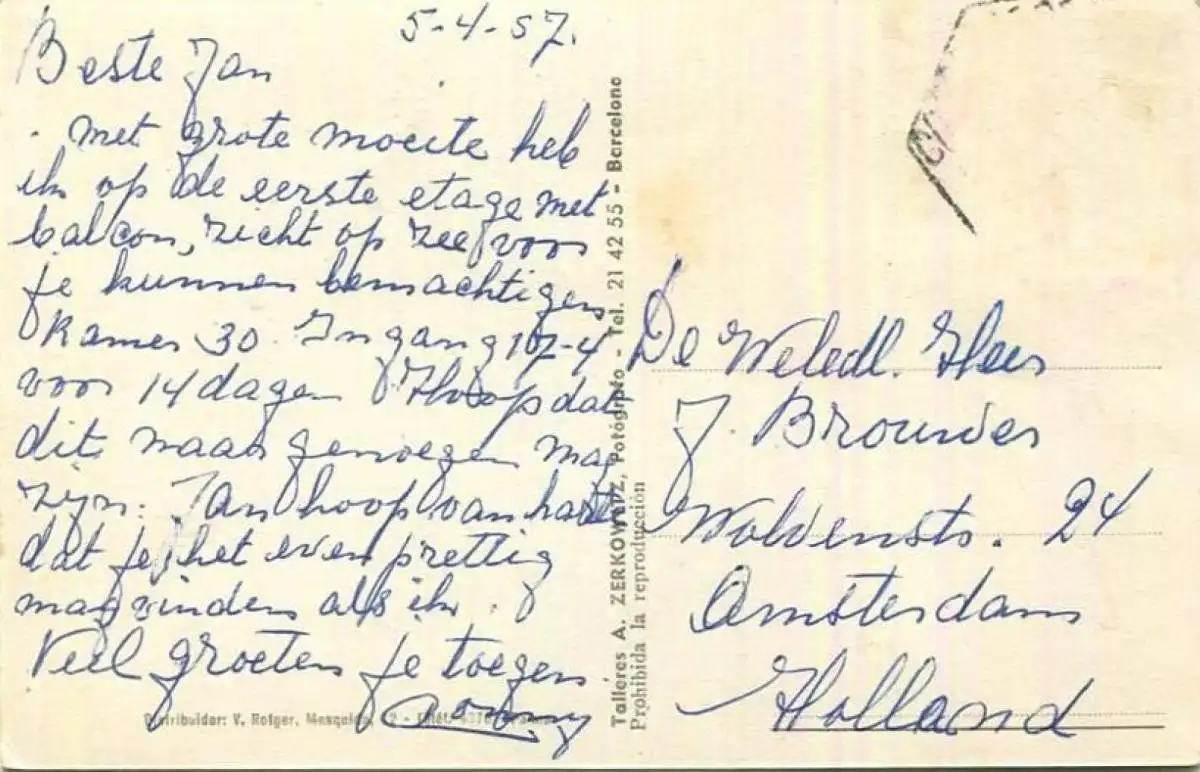 5-4-57.
Beste Jan
met grote moeite heb
ik op de eerste etage met
balcon, zicht op zee voor
je kunnen bemachtigen
Kamer 30. Ingang 17-4
voor 14 dagen Hoop dat
dit naar genoegen mag
zijn. Jan hoop van harte
dat je het even prettig
mag vinden als ik.
Veel groeten je toegen
Distribuidor: V. Rotger,
Talleres A. ZERKOWITZ, Fotógrafo - Tel. 21 42 55 - Barcelona
Prohibida la reproducción
De Weledl. Heer
J. Brouwer
Wolvenstr. 24
Amsterdam
Holland